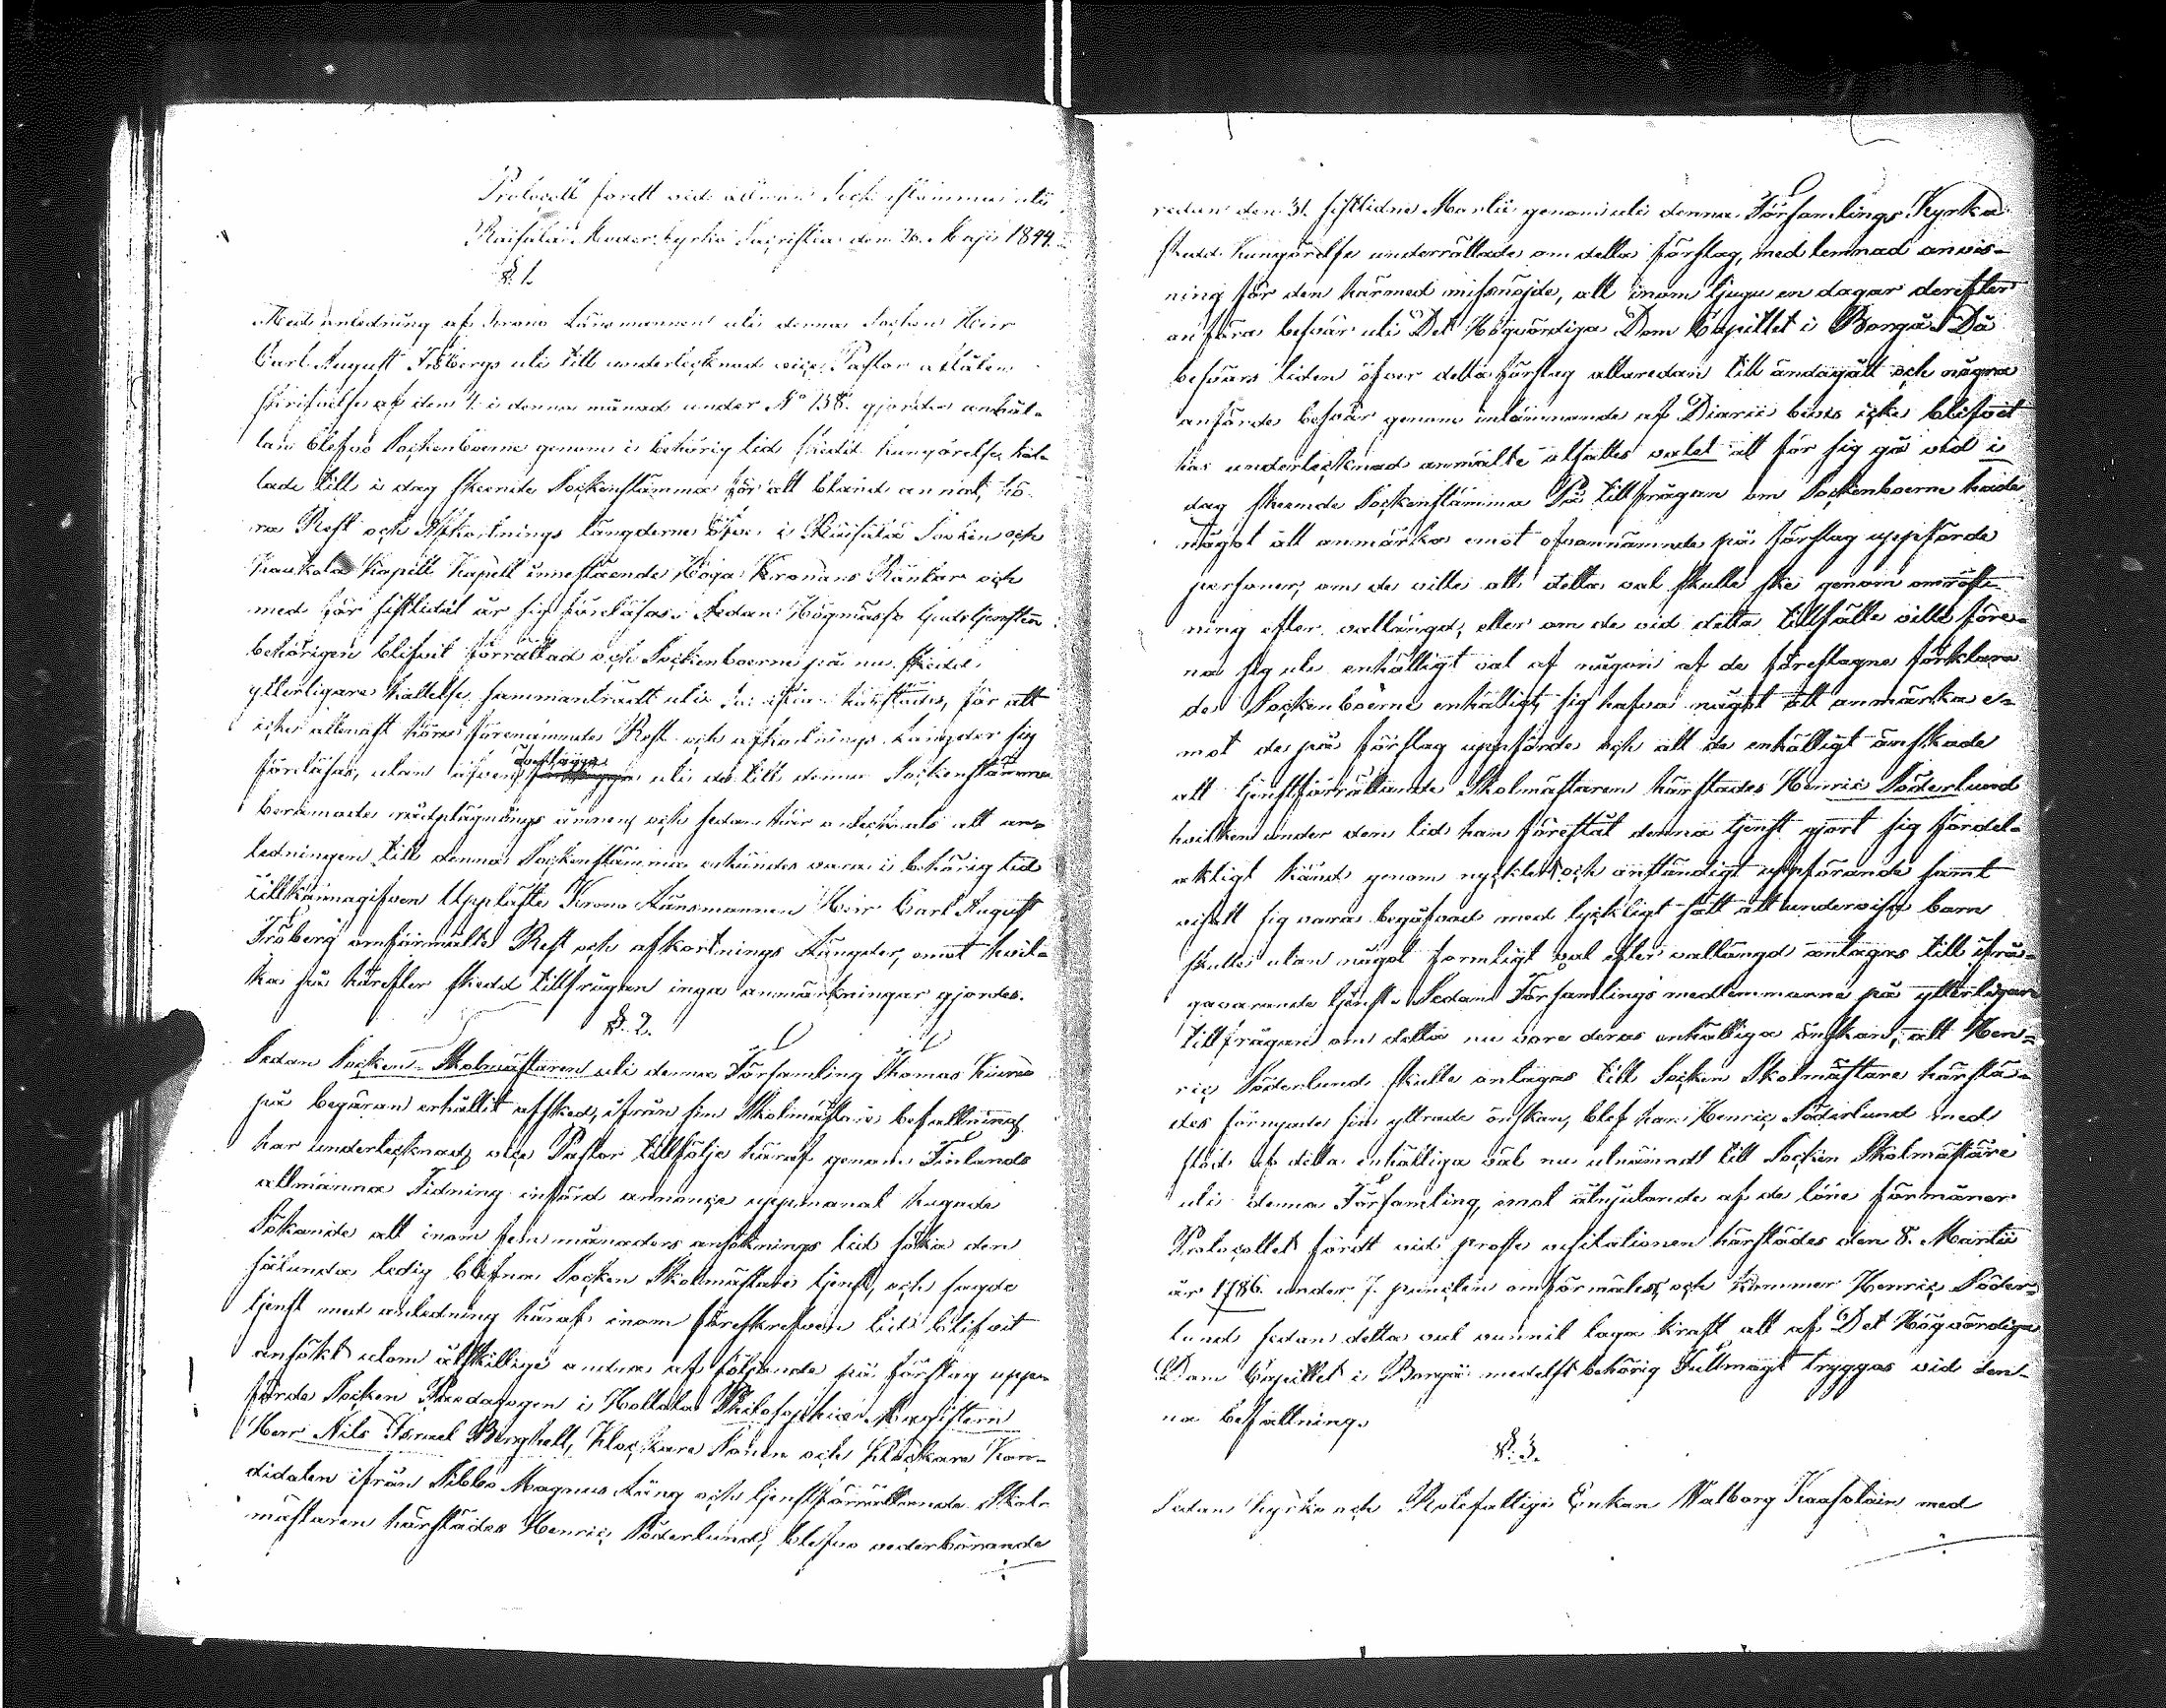 Protocoll fördt vid allmän Sockenstämma uti
Raisälä Moder kyrko Sacristia den 26. Maji 1844.
§. 1.
Med anledning af Krono Länsmannen uti denna Socken Herr
Carl August Fröbergs uti till undertecknad vice Pastor aflåten
skrifvelse af den 4. i denna månad under N:o 138. gjorda anhål-
lan blefvo Sockenboerne genom i behörig tid skedd kungörelse kal-
lade till i dag skeende Sockenstämma för att bland annat, hö-
ra Rest och Afkortnings längderne öfver i Räisälä Socken och
Kaukola Kapell innestående Höga Kronans Räntor och
med för sistlidit år sig föreläsas. Sedan Högmässo Gudstjensten
behörigen blifvit förrättad och Sockenboerne på nu skedd
ytterligare kallelse sammanträdt uti Sacristian härstädes, för att
icke allenast höra förenämnde Rest och afkortnings Längder sig
föreläsas, utan äfven öfverlägga uti de till denna Sockenstämma
berämade rådplägnings ämnen och sedan här antecknats att an-
ledningen till denna Sockenstämma erkändes vara i behörig tid
tillkännagifven Uppläste Krono Länsmannen Herr Carl August
Fröberg omförmälte Rest och afkortnings Längder, emot hvil-
ka på härefter skedd tillfrågan inga anmärkningar gjordes.
§. 2.
Sedan Socken-Skolmästaren uti denna Församling Thomas
på begäran erhållit afsked, ifrån sin Skolmästare befattning
har undertecknad vice Pastor tillfölje häraf genom Finlands
allmänna Tidning införd annonce uppmanat hugade
Sökande att inom fem månaders ansöknings tid söka den
sålunda ledig blefna Socken Skolmästare tjenst, och sagde
tjenst med anledning häraf inom föreskrefven tid blifvit
ansökt utom åtskillige andra af följande på förslag upp-
förde Socken Pædagogen i Hollola Philosophiæ Magistern
Herr Nils Israel Berghell, Klockare Sonen och Klockare Kan-
didaten ifrån Sibbo Magnus Läng och tjenstförrättande Skol-
mästaren härstädes Henric Söderlund, blefvo vederbörande
redan den 31. sistlidne Martii genom uti denna Församlings Kyrka
skedd kungörelse underrättade om detta förslag, med lemnad anvis-
ning för den härmed missnöjde, att inom tjugu en dagar derefter
anföra besvär uti Det Högvördiga Dom Capitlet i Borgå. Då
besvärs tiden öfver detta förslag allaredan till ändagått och några
anförde besvär genom inlämnande af Diarii bevis icke blifvit
hos undertecknad anmälte utsattes valet att för sig gå vid i
dag skeende Sockenstämma På tillfrågan om Sockenboerne hade
något att anmärka emot ofvannämnde på förslag uppförde
personer, om de ville att detta val skulle ske genom omröst-
ning efter vallängd, eller om de vid detta tillfälle ville före-
na sig uti enhälligt val af någon af de föreslagne förklara-
de Sockenboerne enhälligt, sig hafva något att anmärka e-
mot de på förslag uppförde och att de enhälligt önskade
att tjenstförrättande Skolmästaren härstädes Henric Söderlund
hvilken under den tid han förestått denna tjenst gjort sig fördel-
aktigt känd genom nyckter och anständigt uppförande samt
visat sig vara begåfvad med lyckligt sätt att undervisa barn
skulle utan något formligt val efter vallängd antagas till ifrå-
gavarande tjenst. Sedan Församlings medlemmarne på ytterligare
tillfrågan om detta nu vore deras enhälliga önskan, att Hen-
ric Söderlund skulle antagas till Socken Skolmästare härstä-
des förnyade sin yttrade önskan, blef han Henric Söderlund med
stöd af detta enhälliga val nu utnämnd till Socken Skolmästare
uti denna Församling, emot åtnjutande af de löne förmåner
Protocollet fördt vid prosts visitationen härstädes den 8. Martii
år 1786. under 7. puncten omförmäles, och kommer Henric Söder-
lund sedan detta val vunnit laga kraft att af Det Högvördiga
Dom Capitlet i Borgå medelst behörig Fullmagt tryggas vid den-
na befattning.
§. 3.
Sedan Kyrko och Rotefattige Enkan Walborg med